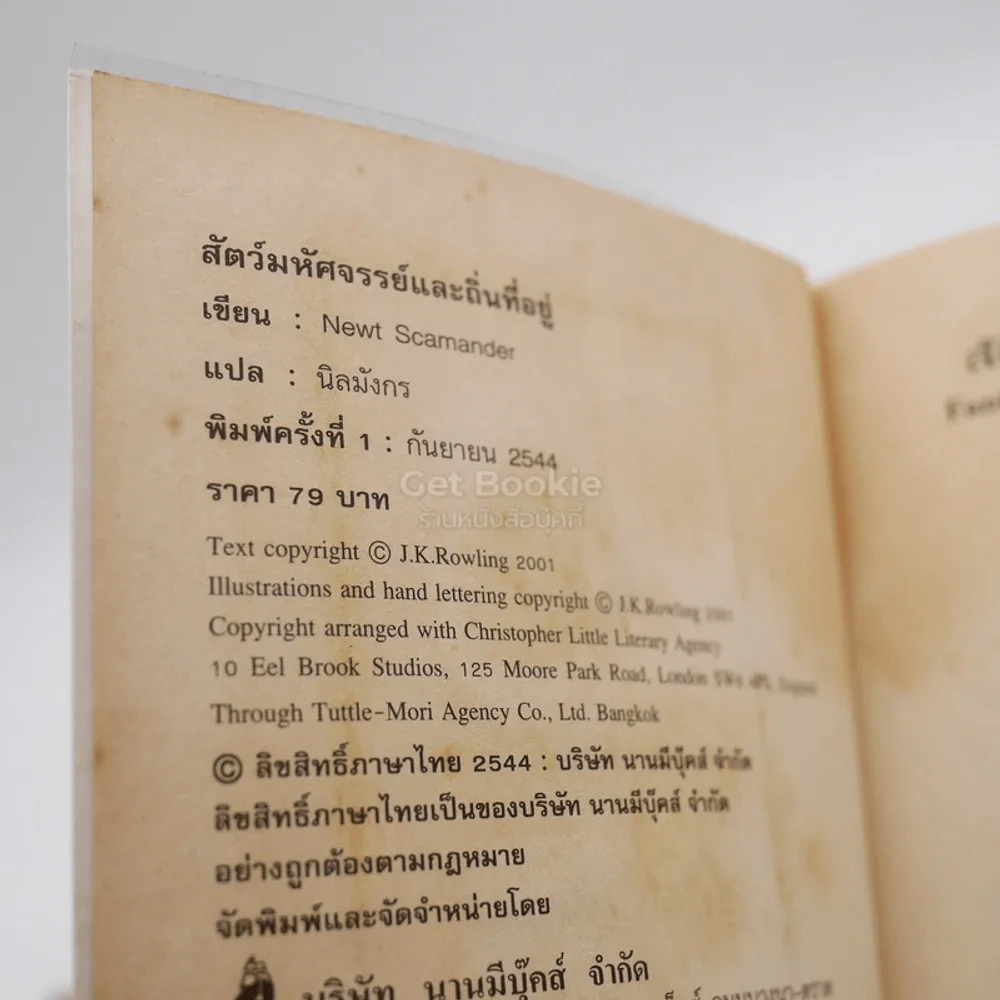 สัตว์มหัศจรรย์และถิ่นที่อยู่
เขียน : Newt Scamander
แปล : นิลมังกร
พิมพ์ครั้งที่ 1 : กันยายน 2544
ราคา 79 บาท
Get Bookie
ร้านหนังสือบุ๊คกี้
Text copyright © J.K.Rowling 2001
Illustrations and hand lettering copyright © J.K.Rowling 2001
Copyright arranged with Christopher Little Literary Agency
10 Eel Brook Studios, 125 Moore Park Road, London SW6 4PS, England
Through Tuttle-Mori Agency Co., Ltd. Bangkok
© ลิขสิทธิ์ภาษาไทย 2544 : บริษัท นานมีบุ๊คส์ จำกัด
ลิขสิทธิ์ภาษาไทยเป็นของบริษัท นานมีบุ๊คส์ จำกัด
อย่างถูกต้องตามกฎหมาย
จัดพิมพ์และจัดจำหน่ายโดย
บริษัท นานมีบุ๊คส์ จำกัด